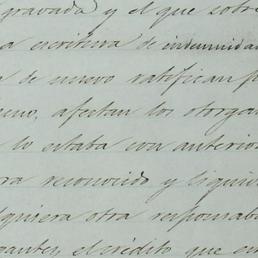 gravada) y el que sobre
a escritura de indemnidad
a de nuevo ratifican p
eno, afectan los otorga
lo estaba con anterio
ra reconocido y liquid
lquiera otra responsab
gantes, el crédito que en